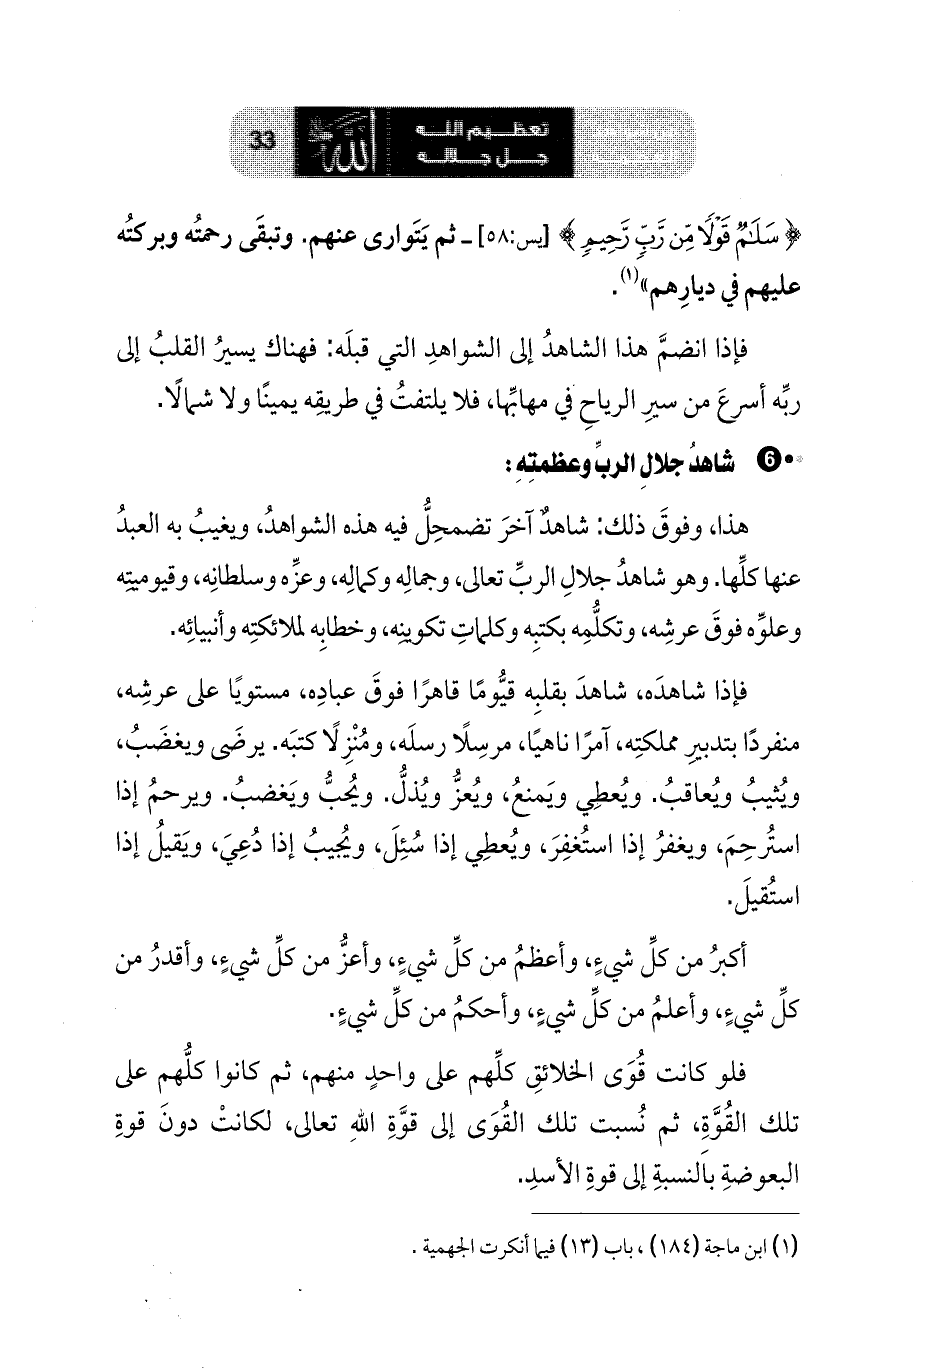 33
تعظيم الله
جل جلاله
﴿ سَلَامٌ قَوْلًا مِّن رَّبٍّ رَّحِيمٍ ﴾ [يس:٥٨] ـ ثم يَتَوارى عنهم. وتبقَى رحمتُه وبركتُه
عليهم في ديارِهم»(١).
فإذا انضمَّ هذا الشاهدُ إلى الشواهدِ التي قبلَه: فهناك يسيرُ القلبُ إلى
ربِّه أسرعَ من سيرِ الرياحِ في مهابِّها، فلا يلتفتُ في طريقِه يمينًا ولا شمالًا.
6 شاهدُ جلالِ الربِّ وعظمتِهِ :
هذا، وفوقَ ذلك: شاهدٌ آخرَ تضمحِلُّ فيه هذه الشواهدُ، ويغيبُ به العبدُ
عنها كلِّها. وهو شاهدُ جلالِ الربِّ تعالى، وجمالِه وكمالِه، وعزِّه وسلطانِه، وقيوميتِه
وعلوِّه فوقَ عرشِه، وتكلُّمِه بكتبِه وكلماتِ تكوينِه، وخطابِه لملائكتِه وأنبيائِه.
فإذا شاهدَه، شاهدَ بقلبِه قيُّومًا قاهرًا فوقَ عبادِه، مستويًا على عرشِه،
منفردًا بتدبيرِ مملكتِه، آمرًا ناهيًا، مرسِلًا رسلَه، ومُنْزِلًا كتبَه. يرضَى ويغضَبُ،
ويُثيبُ ويُعاقبُ. ويُعطِي ويَمنعُ، ويُعزُّ ويُذلُّ. ويُحِبُّ ويَغضبُ. ويرحمُ إذا
استُرحِمَ، ويغفرُ إذا استُغفِرَ، ويُعطِي إذا سُئِلَ، ويُجيبُ إذا دُعِيَ، ويَقيلُ إذا
استُقيلَ.
أكبرُ من كلِّ شيءٍ، وأعظمُ من كلِّ شيءٍ، وأعزُّ من كلِّ شيءٍ، وأقدرُ من
كلِّ شيءٍ، وأعلمُ من كلِّ شيءٍ، وأحكمُ من كلِّ شيءٍ.
فلو كانت قُوَى الخلائقِ كلِّهم على واحدٍ منهم، ثم كانوا كلُّهم على
تلك القُوَّةِ، ثم نُسبت تلك القُوَى إلى قوَّةِ اللهِ تعالى، لكانتْ دونَ قوةِ
البعوضةِ بالنسبةِ إلى قوةِ الأسدِ.
(١) ابن ماجة (١٨٤) ، باب (١٣) فيما أنكرت الجهمية .